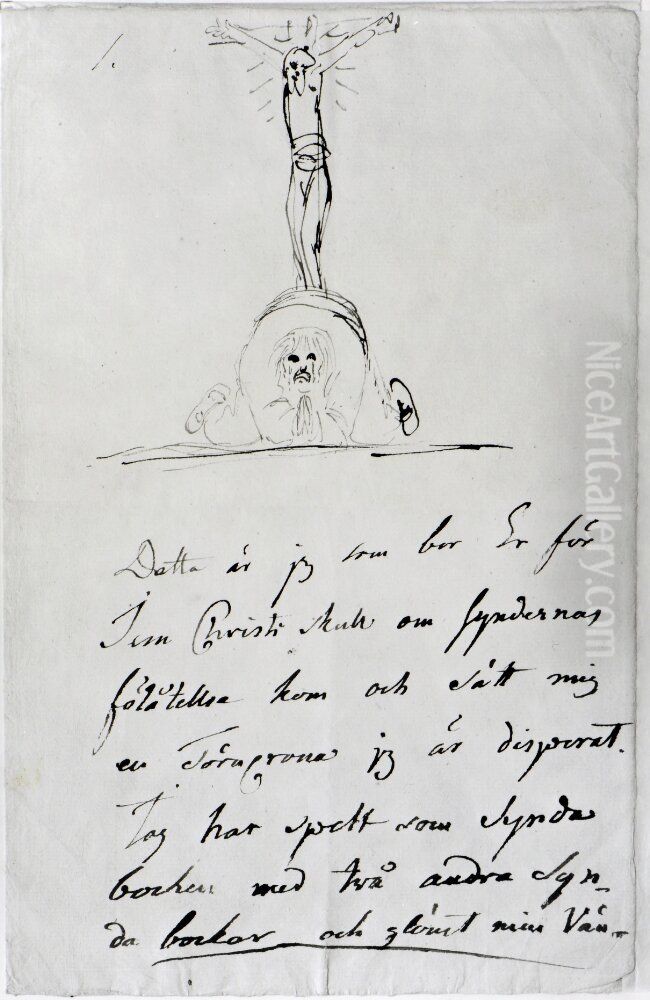 1.
Detta är jg som ber Er för
Jesu Christi skull om syndernas
förlåtelse kom och sätt mig
en Törncrona jg är disperat.
Jag har spelt som Synda
bocken med två andra Syn-
da bockar och glömt min Vän-
NiceArtGallery.com